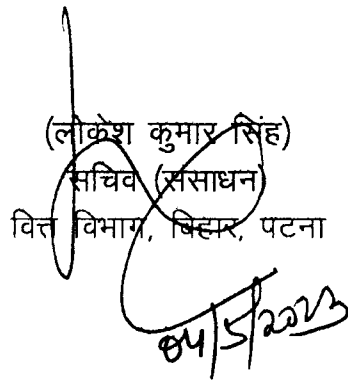 (लोकेश कुमार सिंह)
सचिव (संसाधन)
वित्त विभाग, बिहार, पटना
04/5/2023